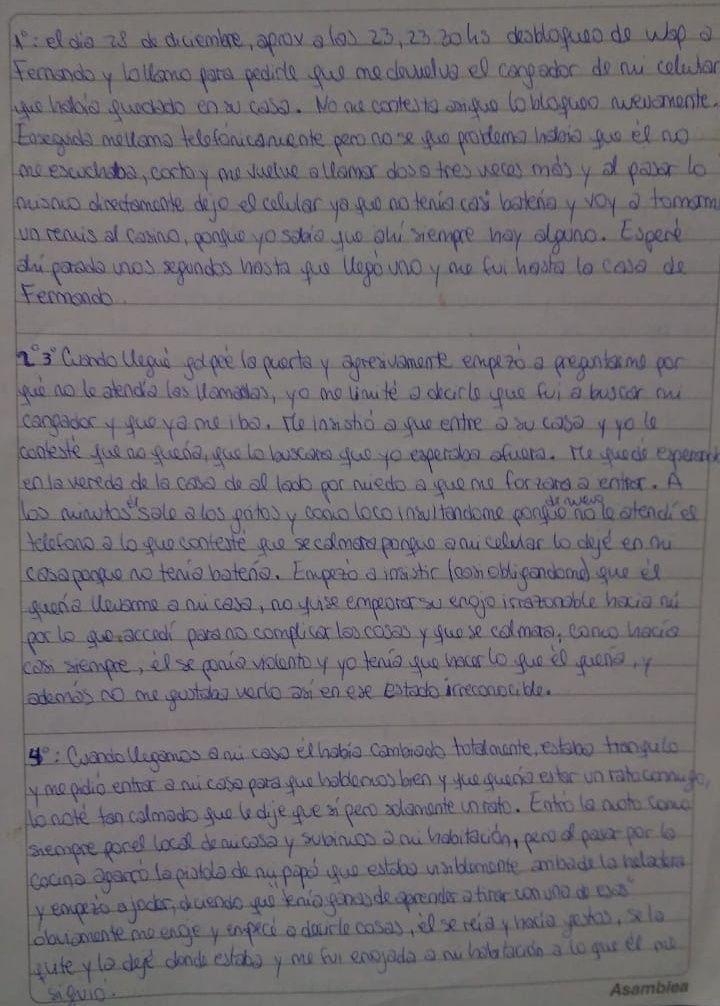 1°: el día 28 de diciembre, aprox a los 23, 23.30hs desbloqueo de wsp a
Fernando y lo llamo para pedirle que me devuelva el cargador de mi celular
que había quedado en su casa. No me contesta así que lo bloqueo nuevamente.
Enseguida me llama telefónicamente pero no se que problema había que él no
me escuchaba, corto y me vuelve a llamar dos o tres veces más y al pasar lo
mismo directamente dejo el celular ya que no tenía casi batería y voy a tomarm
un remis al casino, porque yo sabía que ahí siempre hay alguno. Esperé
ahí parada unos segundos hasta que llegó uno y me fui hasta la casa de
Fernando.
2° 3° Cuando llegué golpeé la puerta y agresivamente empezó a preguntarme por
qué no le atendía las llamadas, yo me limité a decirle que fui a buscar mi
cargador y que ya me iba. Me insistió a que entre a su casa y yo le
contesté que no quería, que lo buscara que yo esperaba afuera. Me quedé esperand
en la vereda de la casa de al lado por miedo a que me forzara a entrar. A
los minutos él sale a los gritos y como loco insultandome porque no le atendí de nuevo el
telefono a lo que contesté que se calmara porque a mi celular lo dejé en mi
casa porque no tenía batería. Empezó a insistir (casi obligandome) que él
quería llevarme a mi casa, no quise empeorar su enojo irrazonable hacia mí
por lo que accedí para no complicar las cosas y que se calmara, como hacía
casi siempre, él se ponía violento y yo tenía que hacer lo que él quería, y
además no me gustaba verlo así en ese estado irreconocible.
4°: Cuando llegamos a mi casa él había cambiado totalmente, estaba tranquilo
y me pidió entrar a mi casa para que hablemos bien y que quería estar un rato conmigo,
lo noté tan calmado que le dije que sí pero solamente un rato. Entró la moto como
siempre por el local de mi casa y subimos a mi habitación, pero al pasar por la
cocina agarró la pistola de mi papá que estaba visiblemente arriba de la heladera
y empezó a joder, diciendo que "tenía ganas de aprender a tirar con una de esas"
obviamente me enojé y empecé a decirle cosas, él se reía y hacía gestos, se la
quité y la dejé donde estaba y me fui enojada a mi habitación a lo que él me
siguió.
Asamblea